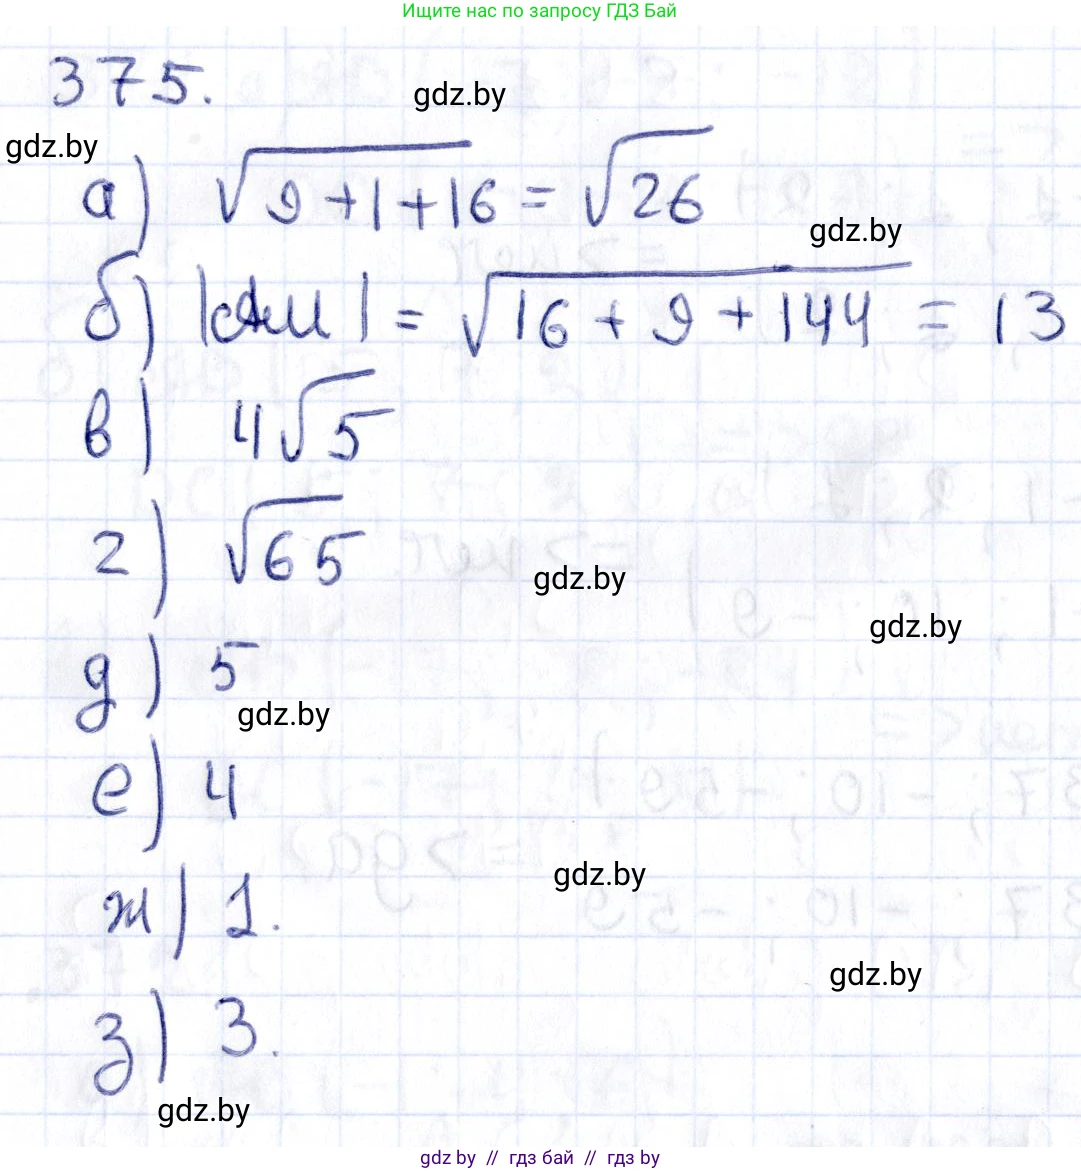 Ищите нас по запросу ГДЗ Бай
375.
gdz.by
gdz.by
а) √9+1+16 = √26
gdz.by
б) |AM| = √16+9+144 = 13
в) 4√5
г) √65
gdz.by
gdz.by
д) 5
gdz.by
е) 4
gdz.by
ж) 1.
gdz.by
з) 3.
gdz.by
gdz by // гдз бай // gdz by